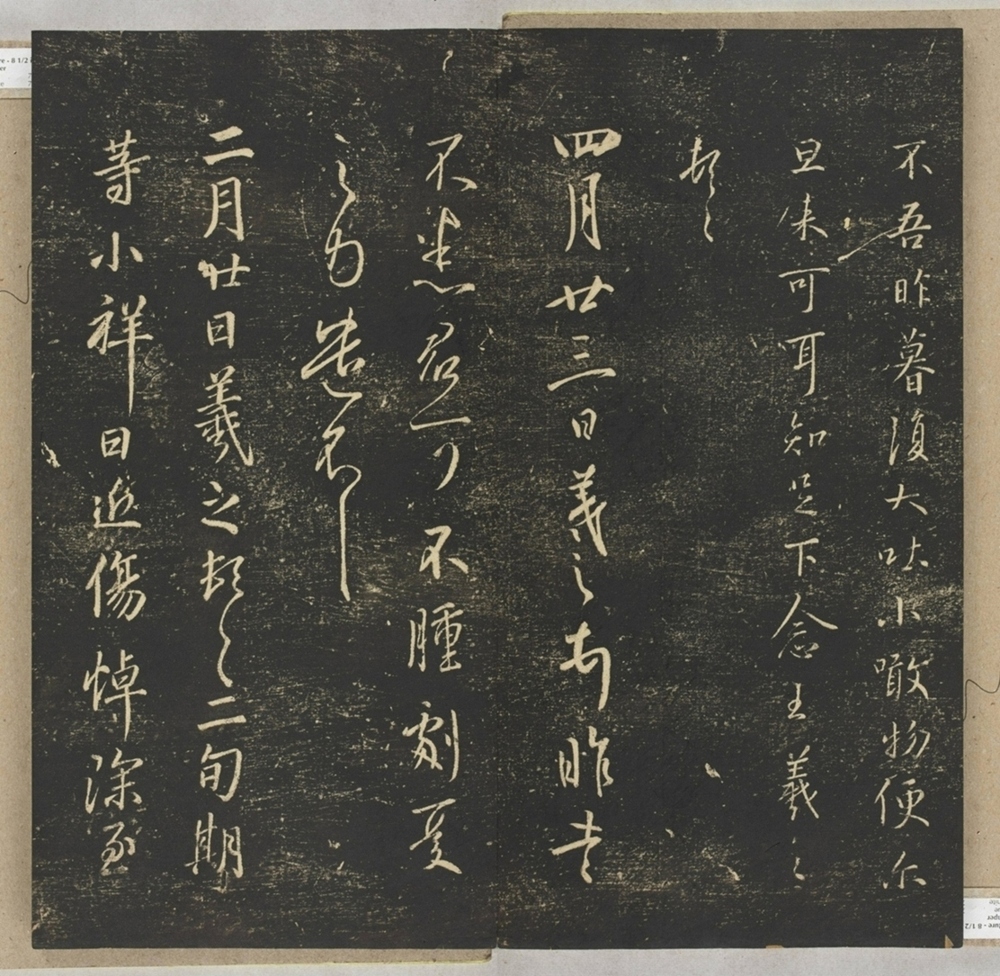 不吾昨暮復大吐小噉物便尔
旦來可耳知足下念王羲之
頓首
四月廿三日羲之昨書
不悉君可不腫劇憂
之力遣不
二月廿日羲之頓首二旬期
等小祥日近傷悼深至